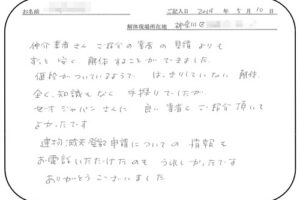 お名前
ご記入日 2014 年 5月 10 日
解体現場所在地 神奈川
仲介業者さん ご紹介の業者の見積よりも
ずっと安く解体することができました。
価格がついているようで はっきりしていない解体。
全く知識もなく手探りでしたが、
ゼオジャパンさんに良い業者をご紹介頂いて
よかったです
建物滅失登記申請についての情報も
お電話いただけたのもうれしかったです
ありがとうございました